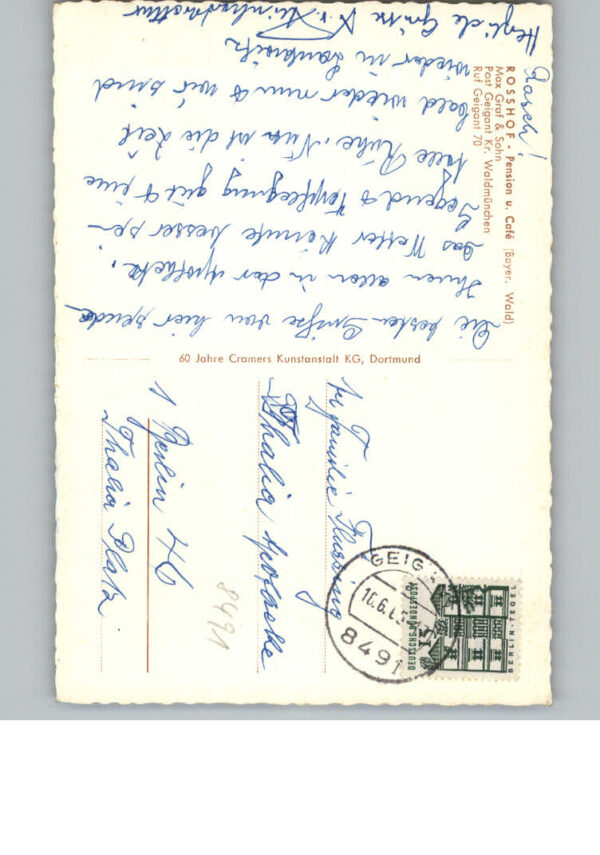 ROSSHOF - Pension u. Café (Bayer. Wald)
Max Graf & Sohn
Post Geigant Kr. Waldmünchen
Ruf Geigant 70
Die besten Grüße von hier sendet
Ihnen allen in der Apotheke.
Das Wetter könnte besser sein
Gegend & Verpflegung gut & eine
tolle Ruhe. Nun ist die Zeit
bald wieder rum & wir sind
wieder in Lankwitz.
Herzliche Grüße
60 Jahre Cramers Kunstanstalt KG, Dortmund
Familie
Thalia Apotheke
1 Berlin 46
Thalia Platz
8491
GEIGANT
16.6.
8491
DEUTSCHE BUNDESPOST
BERLIN-TEGEL